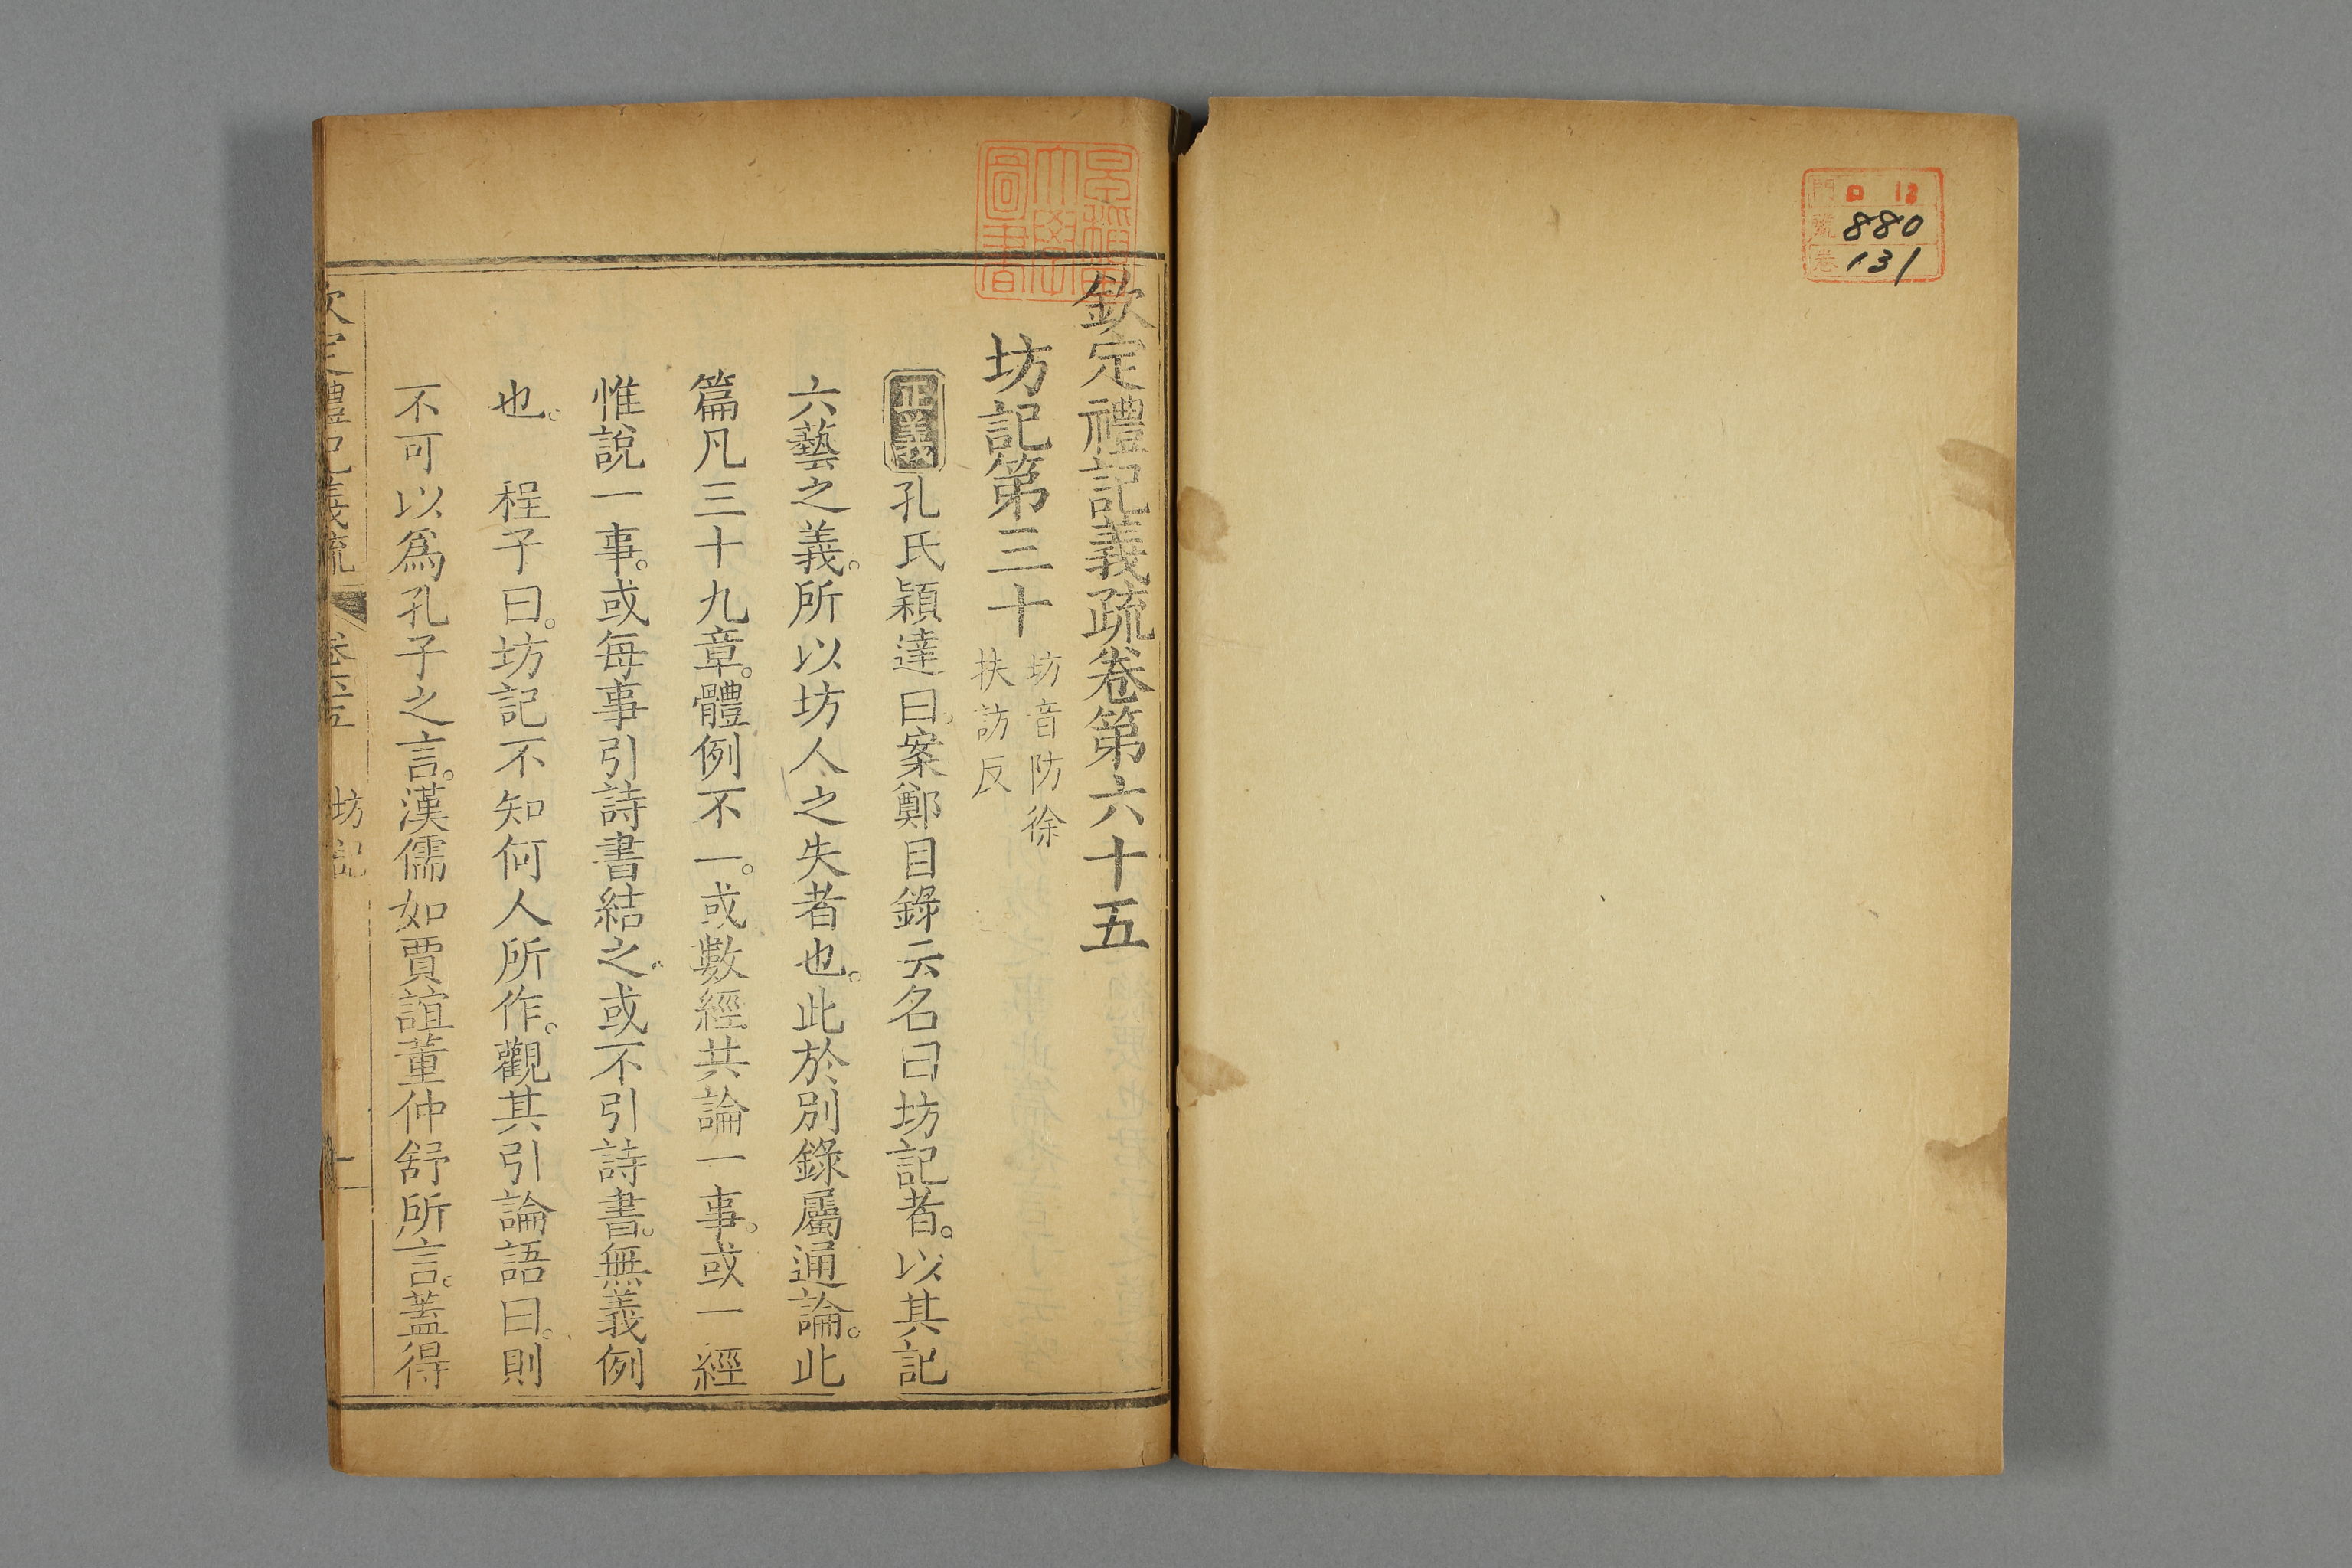 門 ロ 12
號 880
卷 131
早稲田大學圖書
欽定禮記義疏卷第六十五
坊記第三十 坊音防徐扶訪反
正義 孔氏穎達曰。案鄭目錄云名曰坊記者。以其記
六藝之義。所以坊人之失者也。此於別錄屬通論。此
篇凡三十九章。體例不一。或數經共論一事。或一經
惟說一事。或每事引詩書結之。或不引詩書。無義例
也。 程子曰。坊記不知何人所作。觀其引論語曰。則
不可以爲孔子之言。漢儒如賈誼董仲舒所言。蓋得
欽定禮記義疏 卷六十五 坊記 一